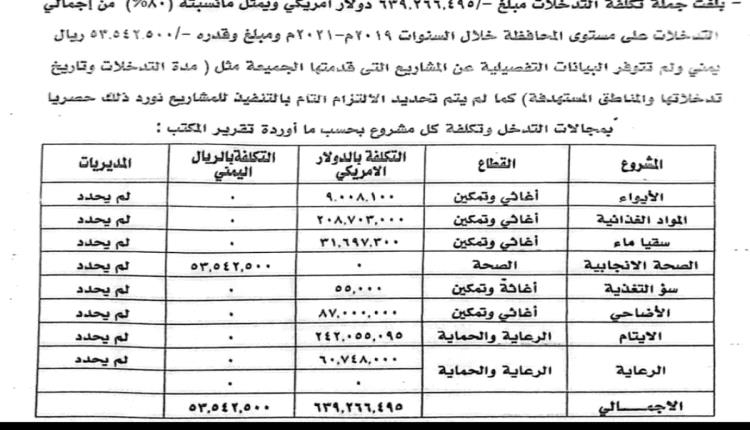 - بلغت جملة تكلفة التدخلات مبلغ -/٦٣٩.٢٦٦.٤٩٥ دولار أمريكي ويمثل مانسبته (٨٠%) من إجمالي
التدخلات على مستوى المحافظة خلال السنوات ٢٠١٩م-٢٠٢١م ومبلغ وقدره -/٥٣.٥٤٢.٥٠٠ ريال
يمني ولم تتوفر البيانات التفصيلية عن المشاريع التى قدمتها الجميعة مثل ( مدة التدخلات وتاريخ
تدخلاتها والمناطق المستهدفة) كما لم يتم تحديد الالتزام التام بالتنفيذ للمشاريع نورد ذلك حصريا
بمجالات التدخل وتكلفة كل مشروع بحسب ما أوردة تقرير المكتب :
المشروع القطاع التكلفة بالدولار الامريكي التكلفة بالريال اليمني المديريات
الأيواء أغاثي وتمكين ٩.٠٠٨.١٠٠ ٠ لم يحدد
المواد الغذائية أغاثي وتمكين ٢٠٨,٧٠٣,٠٠٠ ٠ لم يحدد
سقيا ماء أغاثي وتمكين ٣١,٦٩٧,٣٠٠ ٠ لم يحدد
الصحة الانجابية الصحة ٠ ٥٣,٥٤٢,٥٠٠ لم يحدد
سؤ التغذية أغاثة وتمكين ٥٥,٠٠٠ ٠ لم يحدد
الأضاحي أغاثي وتمكين ٨٧,٠٠٠,٠٠٠ ٠ لم يحدد
الايتام الرعاية والحماية ٢٤٢,٠٥٥,٠٩٥ ٠ لم يحدد
الرعاية الرعاية والحماية ٦٠,٧٤٨,٠٠٠ ٠ لم يحدد
٠ ٠
الاجمـــــالي ٦٣٩,٢٦٦,٤٩٥ ٥٣,٥٤٢,٥٠٠